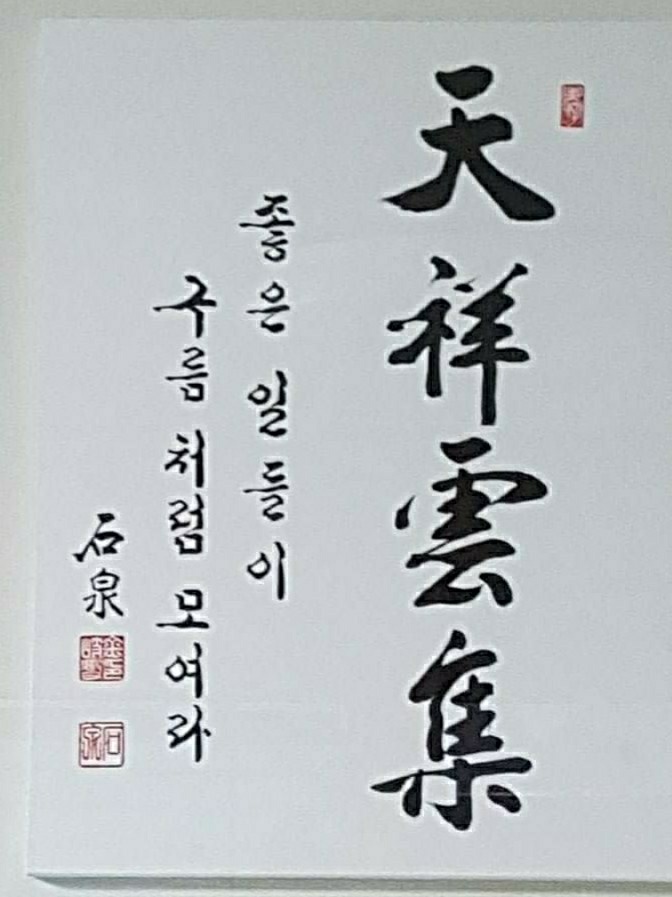 天祥雲集
좋은 일들이
구름처럼 모여라
石泉